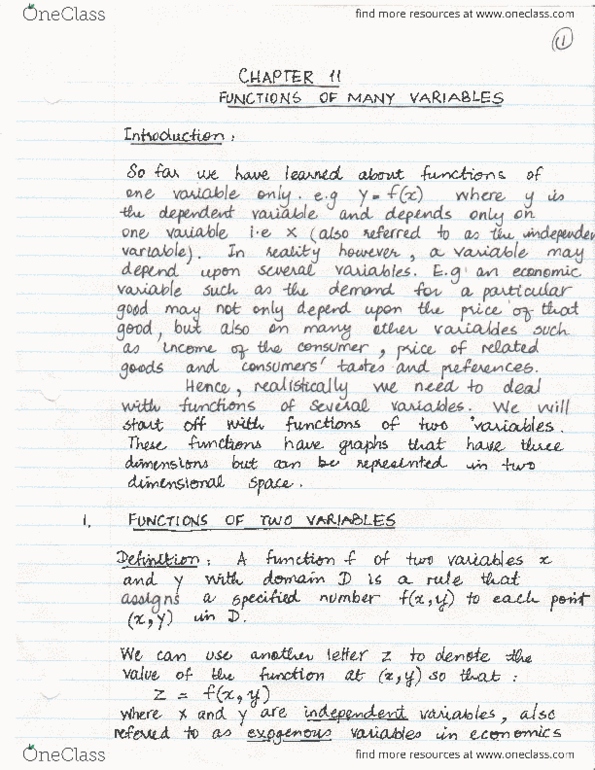 OneClass find more resources at www.oneclass.com
1
CHAPTER 11
FUNCTIONS OF MANY VARIABLES
Introduction:
So far we have learned about functions of
one variable only. e.g y = f(x) where y is
the dependent variable and depends only on
one variable i.e x (also referred to as the independen
variable). In reality however, a variable may
depend upon several variables. E.g. an economic
variable such as the demand for a particular
good may not only depend upon the price of that
good, but also on many other variables such
as income of the consumer, price of related
goods and consumers' tastes and preferences.
Hence, realistically we need to deal
with functions of several variables. We will
start off with functions of two variables.
These functions have graphs that have three
dimensions but can be represented in two
dimensional space.
1. FUNCTIONS OF TWO VARIABLES
Definition: A function f of two variables x
and y with domain D is a rule that
assigns a specified number f(x,y) to each point
(x,y) in D.
We can use another letter z to denote the
value of the function at (x,y) so that:
z = f(x,y)
where x and y are independent variables, also
referred to as exogenous variables in economics
OneClass find more resources at www.oneclass.com